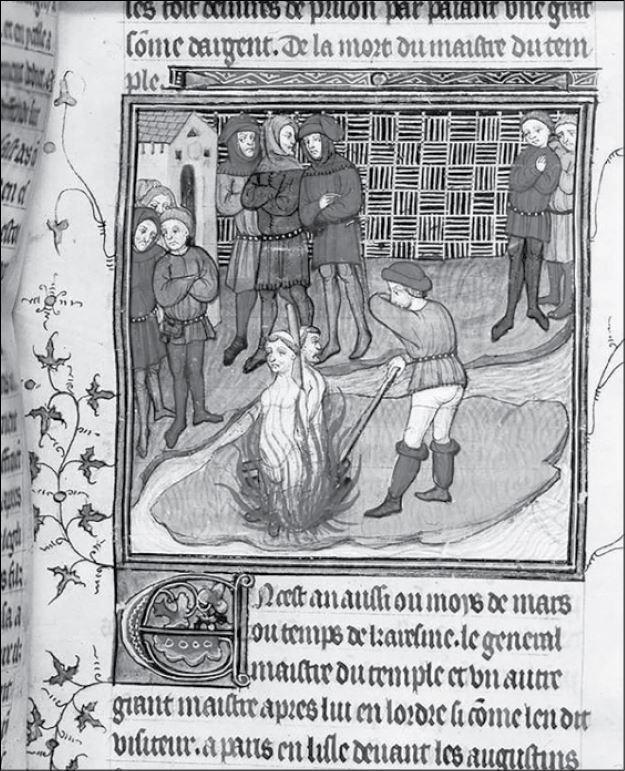 de prison par paiant vne grāt
sōme dargent. De la mort du maistre du tem
ple.
ENcest an aussi ou moys de mars
ou temps de karesme. le general
maistre du temple et vn autre
grant maistre apres lui en lordre si cōme len dit
visiteur. a paris en lisle deuant les augustins